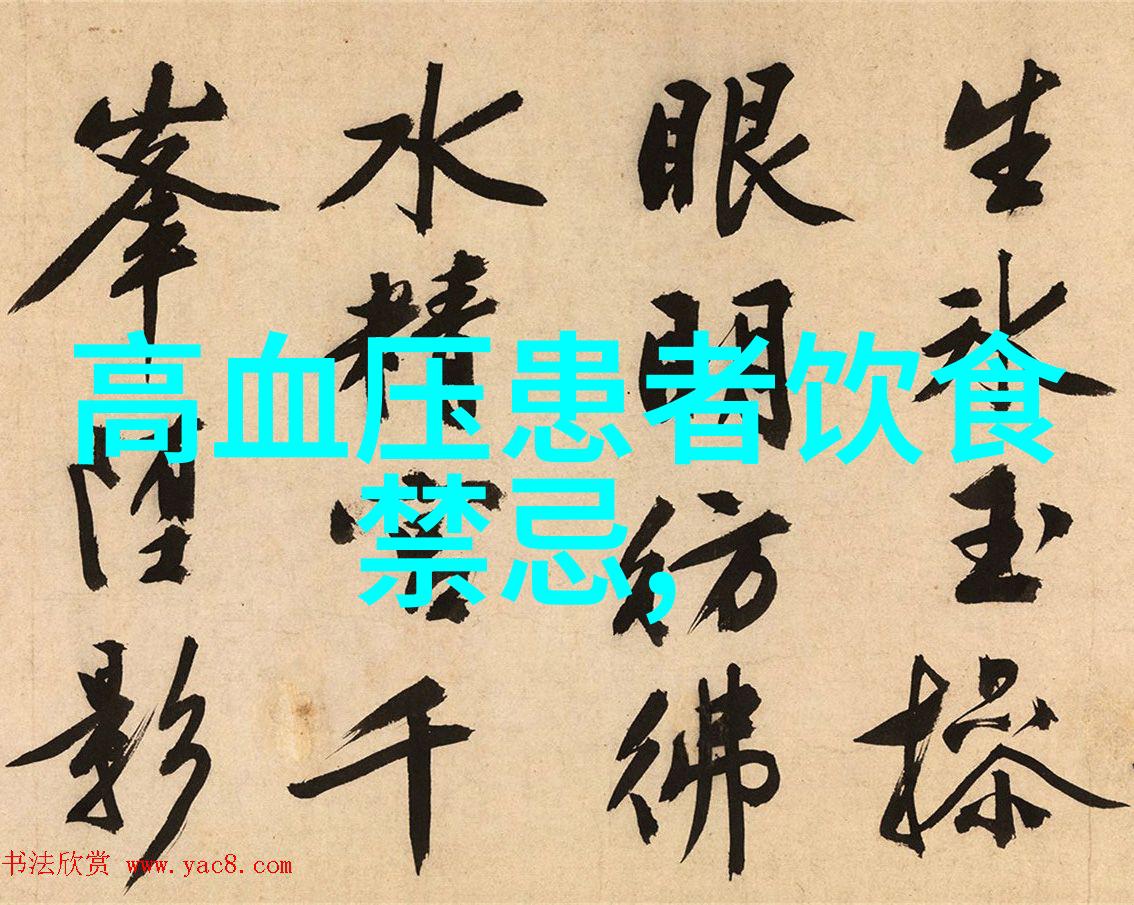 高血压患者饮食
禁忌,
生氷玉操
眼明彷彿
水精宮千
峯影
书法欣赏 www.yac8.com